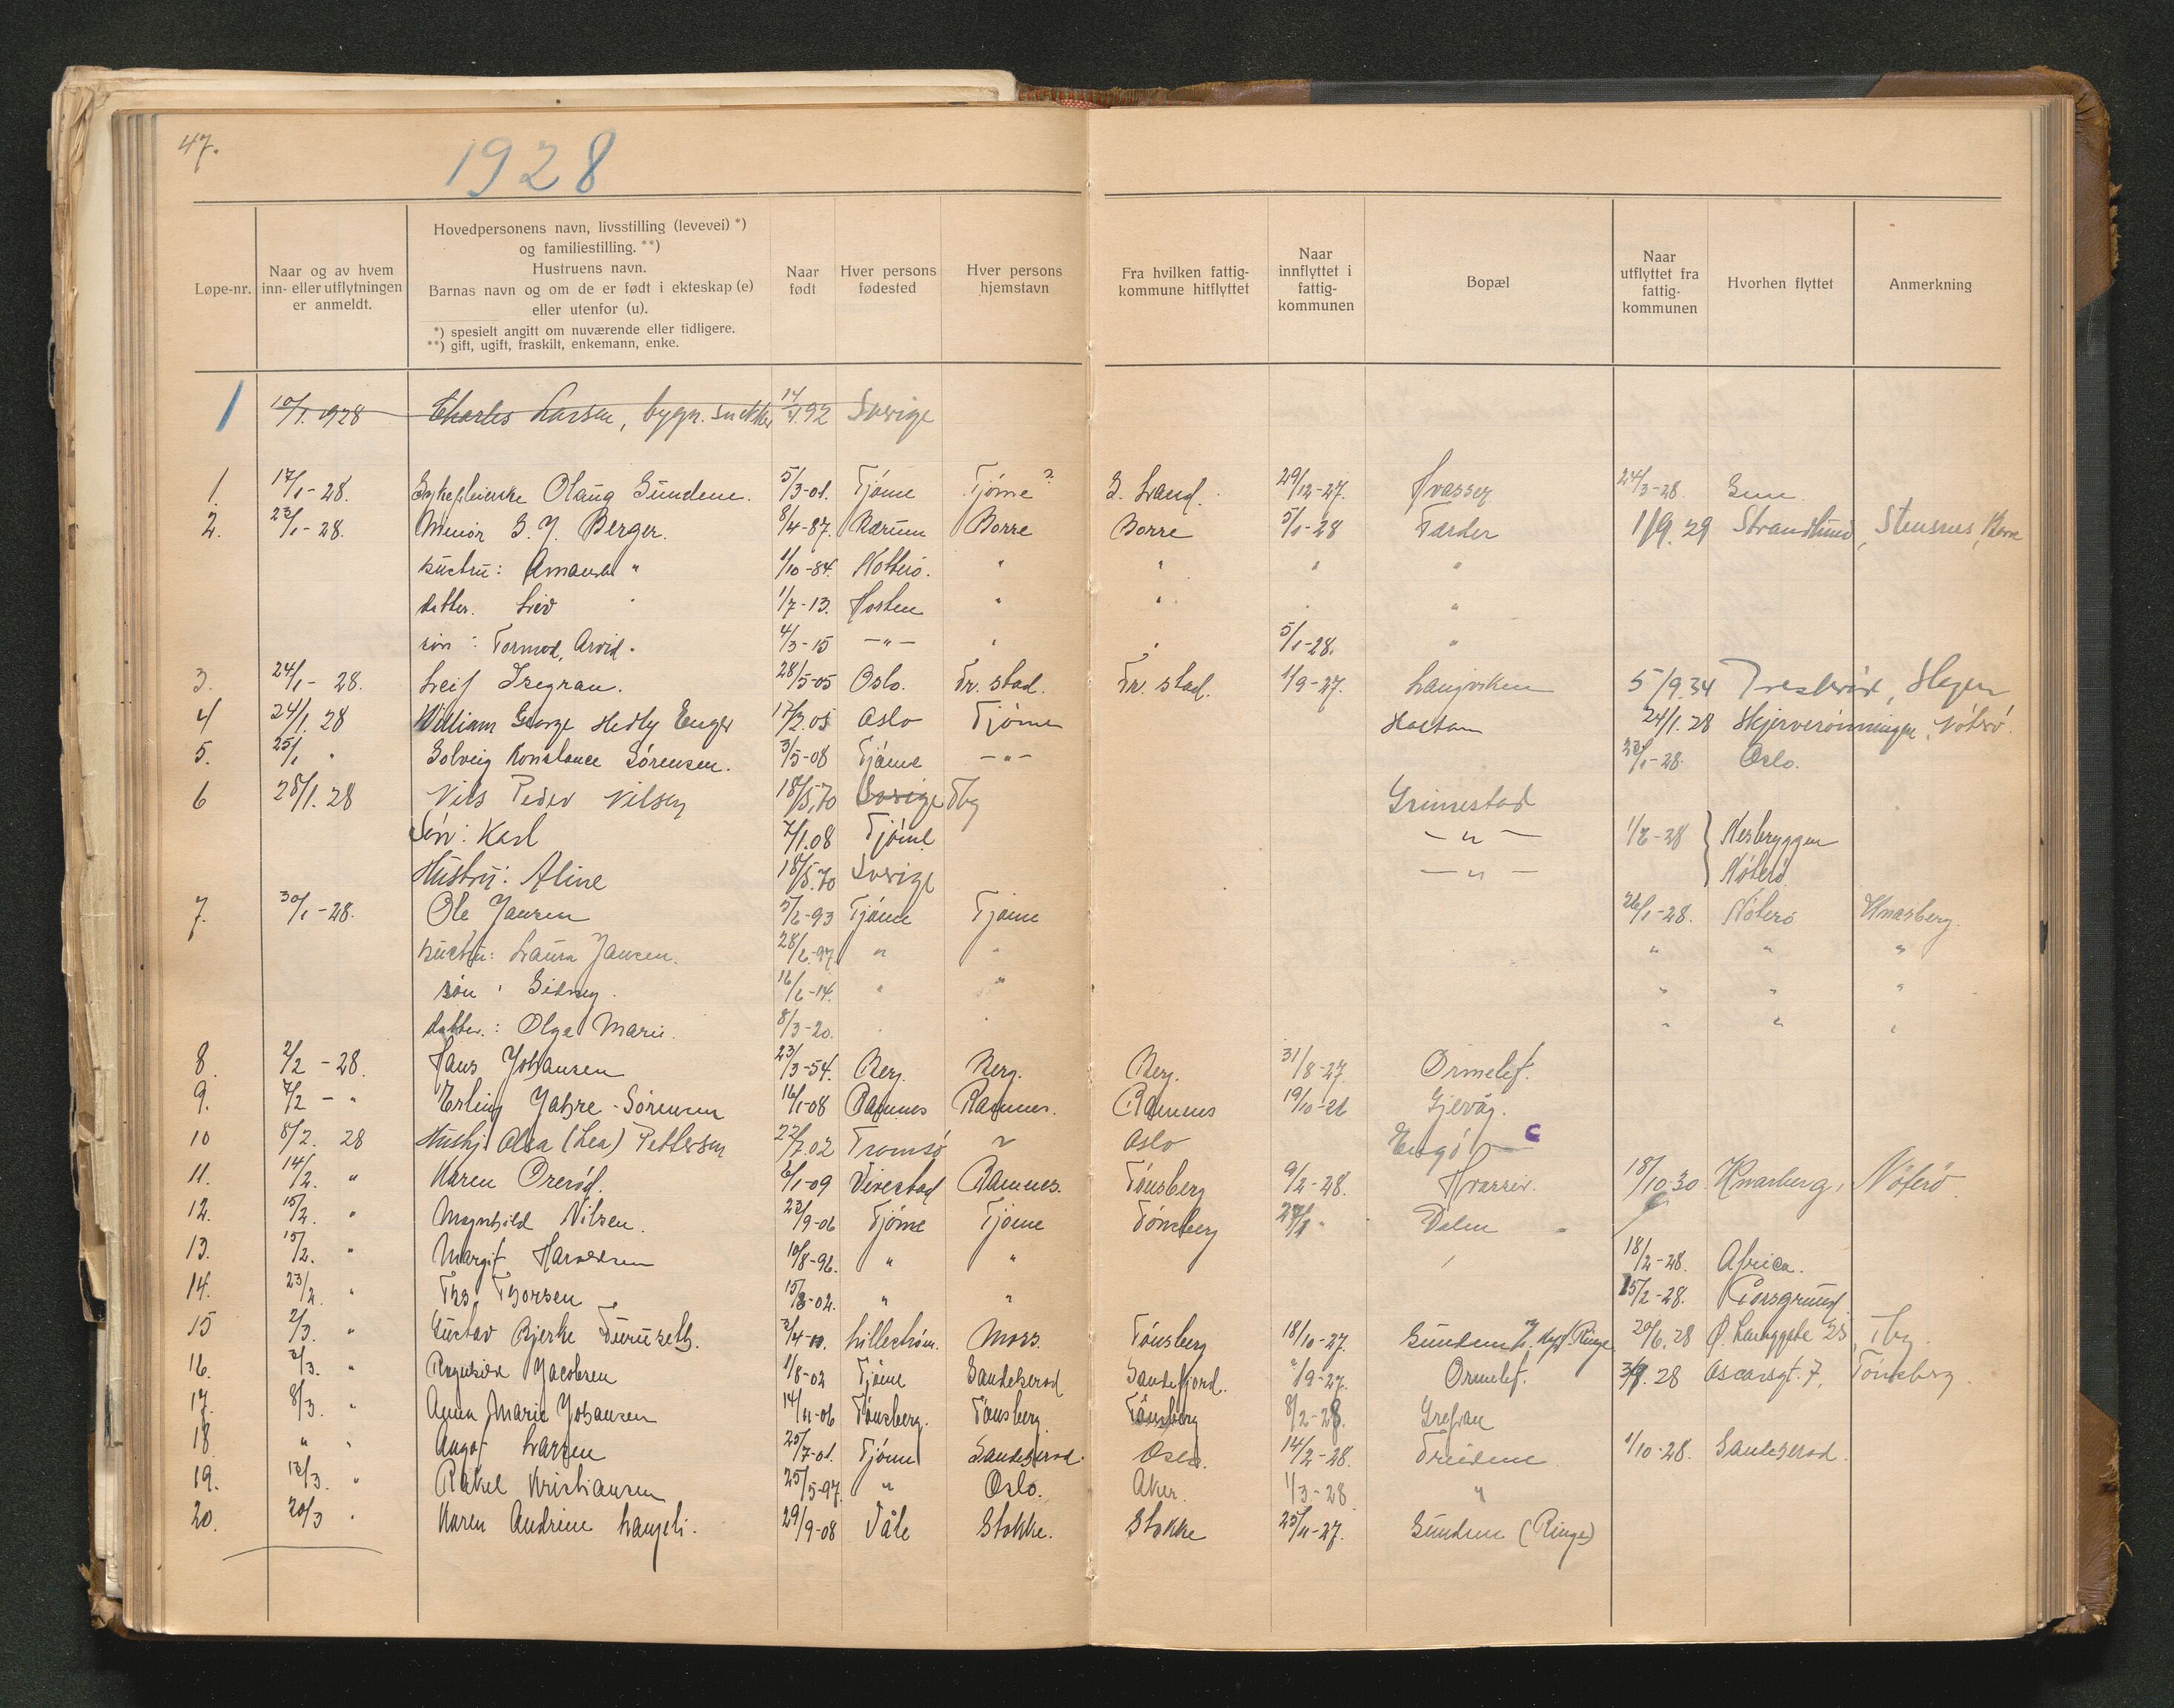 47.
1928
Løpe-nr.
Naar og av hvem
inn- eller utflytningen
er anmeldt.
Hovedpersonens navn, livsstilling (levevei) *)
og familiestilling. **)
Hustruens navn.
Barnas navn og om de er født i ekteskap (e)
eller utenfor (u).
*) spesielt angitt om nuværende eller tidligere.
**) gift, ugift, fraskilt, enkemann, enke.
Naar
født
Hver persons
fødested
Hver persons
hjemstavn
Fra hvilken fattig-
kommune hitflyttet
Naar
innflyttet i
fattig-
kommunen
Bopæl
Naar
utflyttet fra
fattig-
kommunen
Hvorhen flyttet
Anmerkning
1 10/1. 1928 Charles Larsen, bygn. snekker 92 Sverige
1. 17/1-28. Olaug Sundene. 5/3-01. Tjøme Tjøme ? S. Land. 29/12-27. Hvasser 24/3-28
2. 23/1-28. S. J. Berger. 8/4-87. Bærum Borre Borre 5/1-28 Færder 1/9.29 Strandlund, Stensnes, Borre
hustru: Amanda " 1/10-84. Nøtterø. " " " "
datter. Liv " 1/7-13. Horten " " " "
søn: Tormod, Arvid. 4/3-15 -"- " " 5/1-28. "
3. 24/1-28. Leif Isegran. 28/5-05 Oslo. Fr. stad. Fr. stad. 1/9-27. Langviken 5/9.34
4 24/1. 28 William George Hedly Enger 05 Oslo Tjøme 24/1.28 Skjerverønningen, Nøterø.
5. 25/1 " Solveig Konstance Sørensen. 3/5-08 Tjøme -"- -28. Oslo.
6 28/1. 28 Nils Peder Nilsen 18/5.70 Sverige Tbg Grimestad
Søn: Karl 7/1.08 Tjøme -"- -28 Nesbryggen
Hustru: Aline 18/5.70 Sverige -"- Nøterø
7. 30/1-28. Ole Jansen -93 Tjøme Tjøme 26/1-28. Nøterø Knarberg.
hustru: Laura Jansen. -97 " " " " "
søn: Sidney. -14. " " " " "
datter.: Olga Marie. 8/3-20. " " " " "
8. 2/2-28. Hans Johansen 23/3-54. Berg. Berg. Berg. 31/8-27. Ormelet.
9. 7/2-" Erling Jahre-Sørensen 16/1-08 Ramnes Ramnes. Ramnes 19/10-26 Gjervåg.
10 8/2. 28 Hushj. (Lea) Pettersen 7.02 Tromsø ~ Oslo Engø
11. 14/2. " Karen Orerød. 6/1-09 Vivestad Ramnes. Tønsberg 9/2-28. Hvasser. 18/10.30 Knarberg, Nøterø.
12. 15/2. " Magnhild Nilsen. 23/9-06 Tjøme Tjøme Tønsberg " Dalen
13. 15/2. " Margit 10/8-96. " " 18/2-28. Africa.
14. 23/2. " Ths. Thorsen -02. " " 15/2-28. Porsgrund.
15 2/3. " Gustav Bjerke Furuseth. Lillestrøm. Moss. Tønsberg 18/10-27. Sundene 20/6.28 Ø. Langgate 23 Tbg.
16. 2/3. " Ragnhild Jacobsen 1/8-02 Tjøme Sandeherad Sandefjord. /9-27. Ormelet. .28 Oscarsgt. 7, Tønsberg.
17. 8/3. " Anna Marie Johansen 14/11-06 Tønsberg. Tønsberg. Tønsberg 8/2-28. Grepan
18 " " Aagot Larsen 25/7-01. Tjøme Sandeherad. Oslo. 14/2-28. Treidene. 1/10-28. Sandeherad.
19. 12/3. " Rakel Kristiansen 25/5-97. " Oslo. Aker. 1/3-28. "
20. 20/3 " Karen Andrine Langeli. 29/9-08 Våle Stokke. Stokke 25/11-27. Sundene (Ringe)